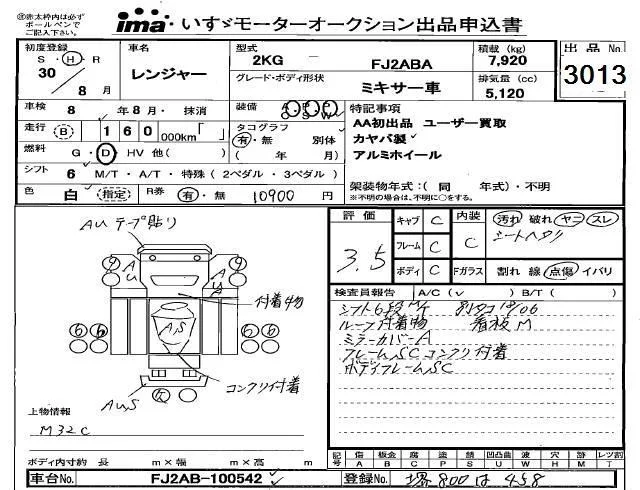 ※赤太枠内は必ず
ボールペンで
ご記入下さい。
ima いすゞモーターオークション出品申込書
初度登録
S・H・R
30
8月
車名
レンジャー
型式
2KG ー FJ2ABA
グレード・ボディ形状
ミキサー車
積載 (kg)
7,920
排気量 (cc)
5,120
出品No.
3013
車検 8 年 8 月・抹消
走行 B 160 000km「 」
燃料 G・D・HV 他( )
シフト 6 M/T・A/T・特殊(2ペダル・3ペダル)
色 白 指定 R券 有・無 10900 円
装備 A P P A
S S W W
タコグラフ
有・無 別体
( 年 月)
特記事項
AA初出品 ユーザー買取
カヤバ製
アルミホイール
架装物年式:( 同 年式)・不明
※不明の場合は、不明に○をする。
AU テープ貼り
9 9
A U
A U
A/S
付着物
6 6 6 6
コンクリ付着
AUS
上物情報
M32C
ボディ内寸約 長 m×幅 m×高 m
車台No. FJ2AB-100542
評価
3.5
キャブ C
フレーム C
ボディ C
内装 C
Fガラス
汚れ 破れ ヤニ スレ
シートヘタリ
割れ 線 点傷 イバリ
検査員報告 A/C (✓ ) B/T ( )
シフト6段M/T 別タコ18/06
ルーフ付着物 看板M
ミラーカバーA
フレームSCコンクリ付着
ボディフレームSC
記号 傷 板金 腐 塗 錆 凹凸曲 波 穴 跡 レツ割
A B C P S U W H M T
登録No. 堺 800 は 458